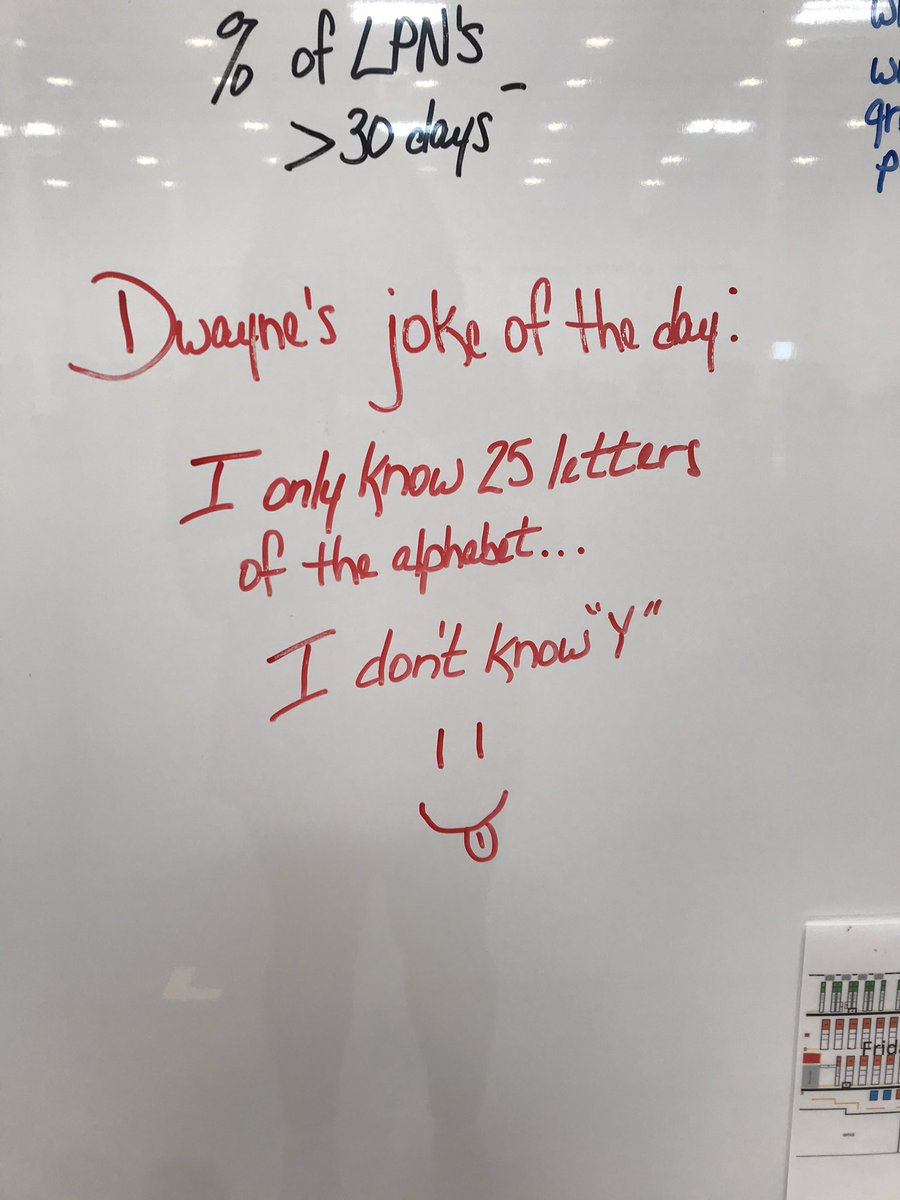 % of LPN's
>30 days
Dwayne's joke of the day:
I only know 25 letters
of the alphabet...
I don't know "Y"